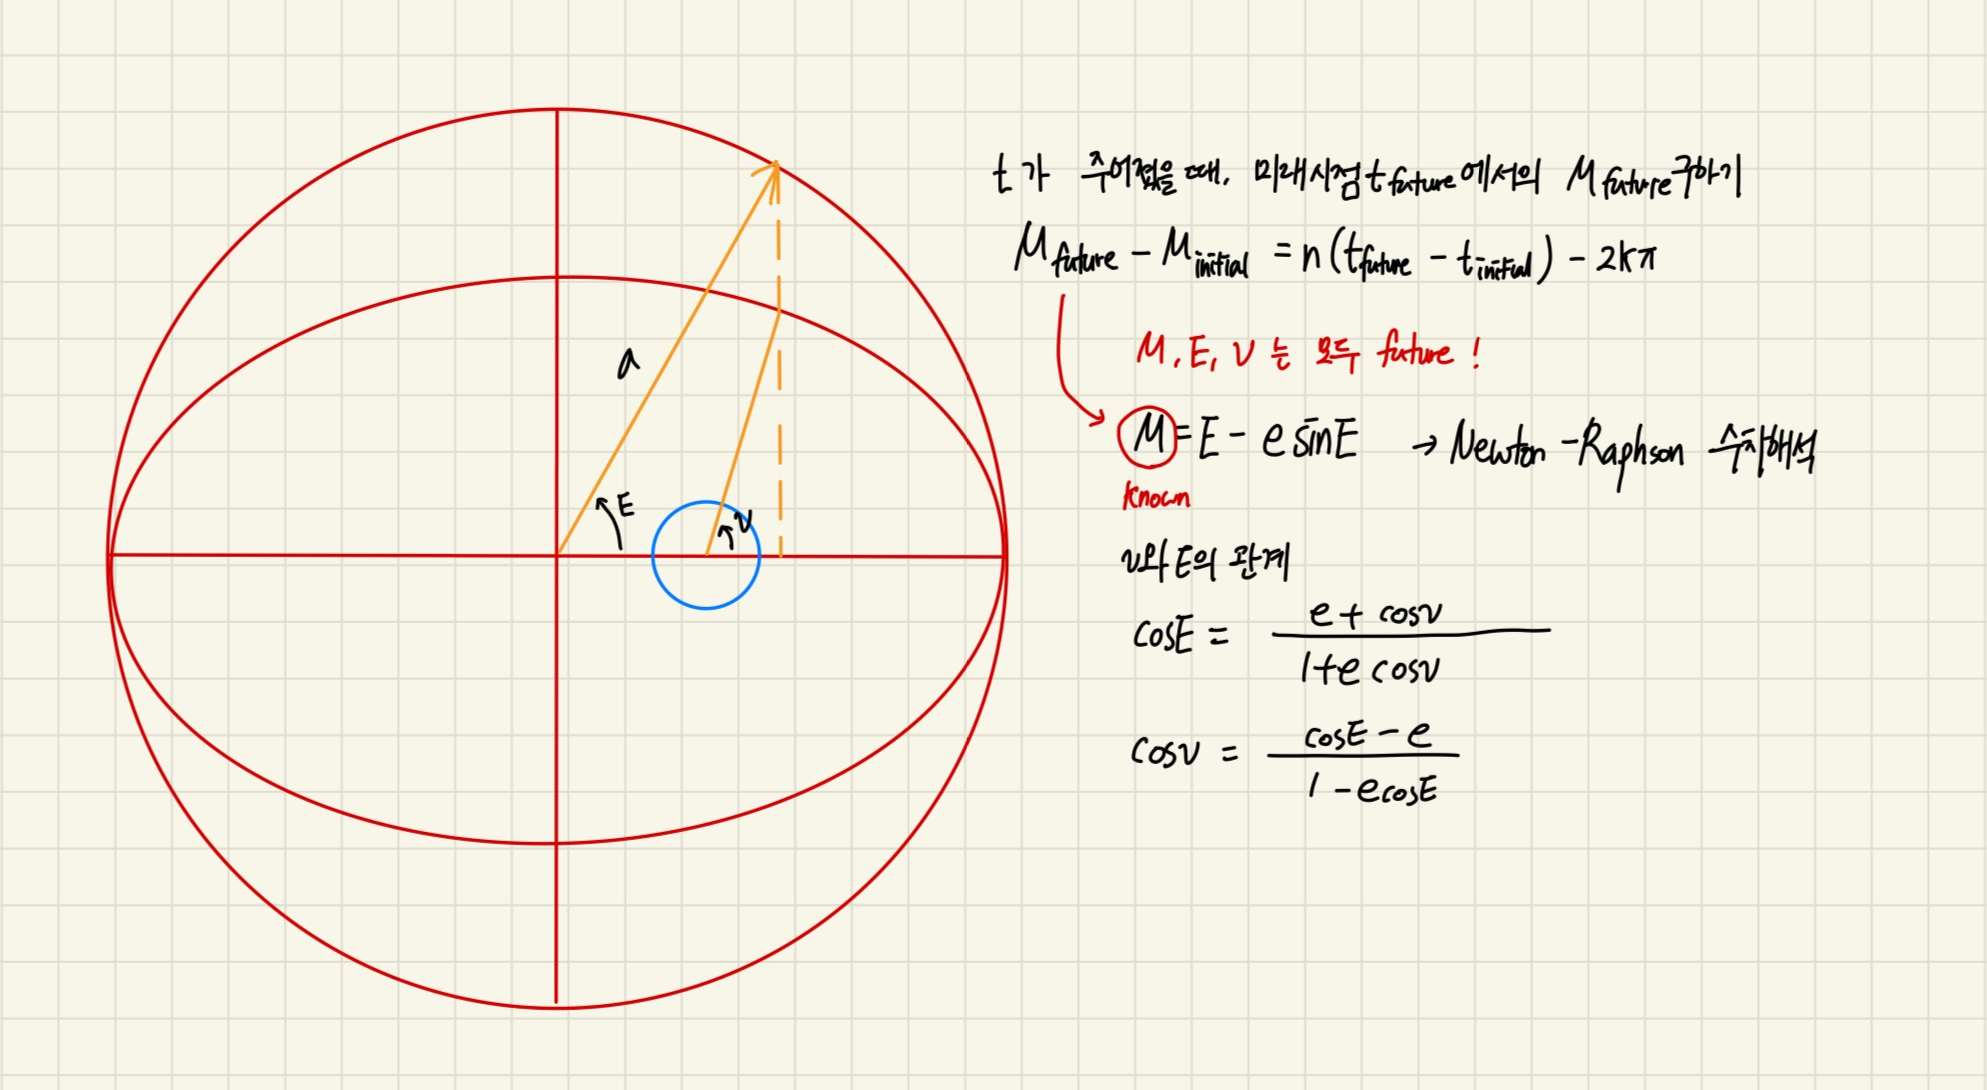 t가 주어졌을 때, 미래시점 t future 에서의 M future 구하기
M future - M initial = n(t future - t initial) - 2kπ
M, E, ν 는 모두 future !
M = E - e sinE → Newton-Raphson 수치해석
known
ν와 E의 관계
cosE = (e + cosν) / (1 + e cosν)
cosν = (cosE - e) / (1 - e cosE)
a
E
ν